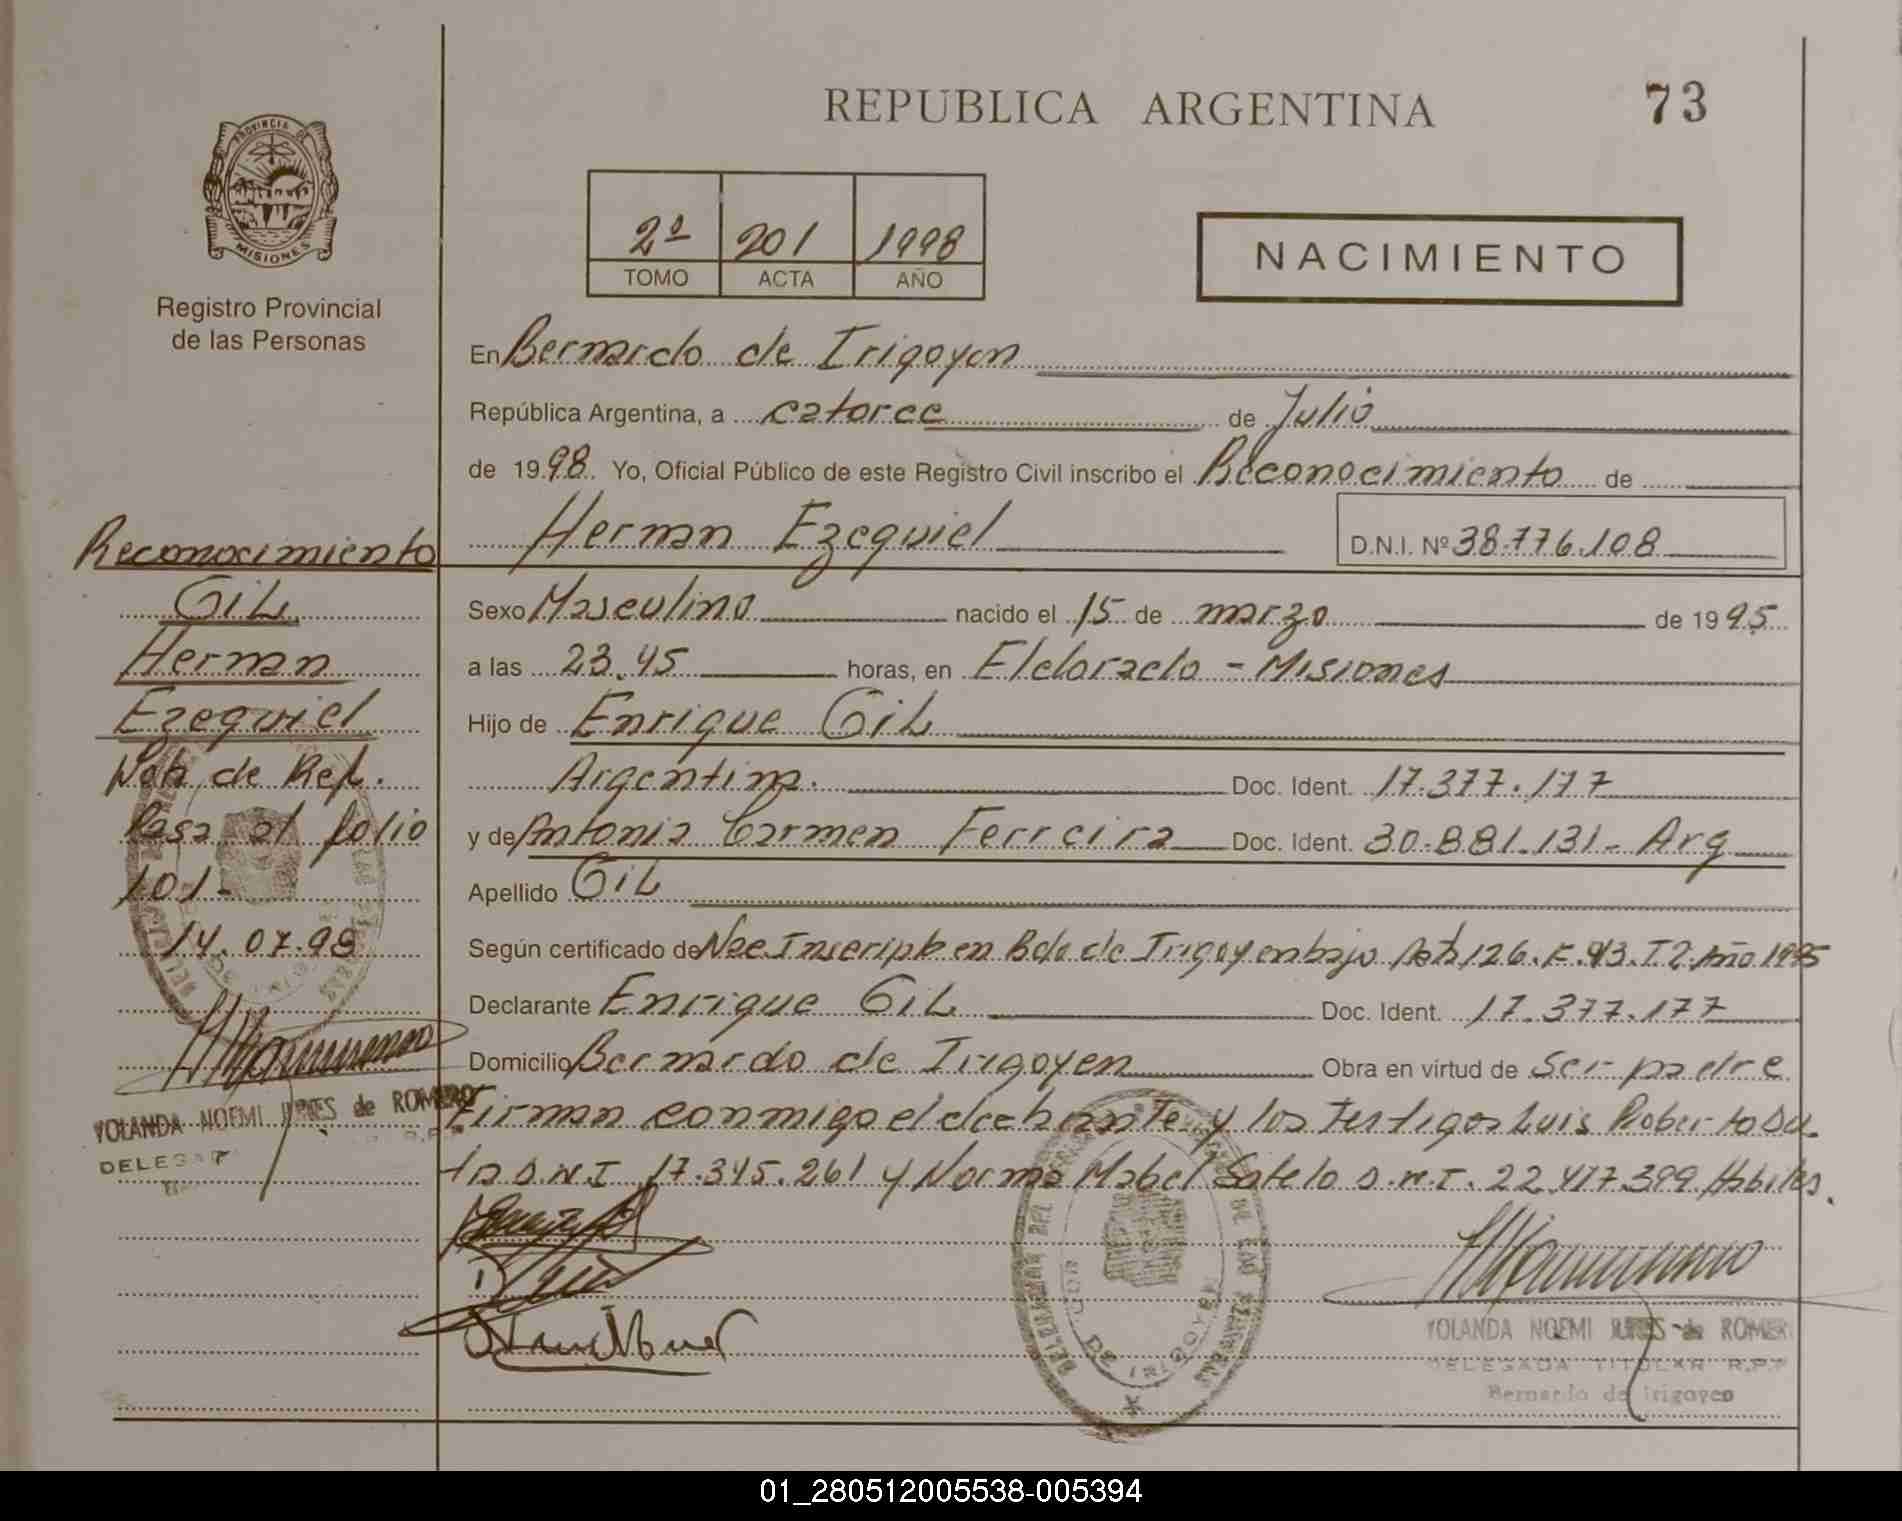 REPUBLICA ARGENTINA
73
PROVINCIA DE
MISIONES
Registro Provincial
de las Personas
2º 201 1998
TOMO ACTA AÑO
NACIMIENTO
En Bernardo de Irigoyen
República Argentina, a catorce de Julio
de 1998. Yo, Oficial Público de este Registro Civil inscribo el Reconocimiento de
Hernan Ezequiel D.N.I. Nº 38.776.108
Reconocimiento
GiL
Hernan
Ezequiel
Nota de Ref.
Pasa al folio
101-
14.07.98
YOLANDA NOEMI de ROMERO
Sexo Masculino nacido el 15 de marzo de 1995
a las 23.45 horas, en Eldorado - Misiones
Hijo de Enrique GiL
Argentina. Doc. Ident. 17.377.177
y de Antonia Carmen Ferreira Doc. Ident. 30.881.131- Arg
Apellido GiL
Según certificado de Nac. Inscripto en Bdo de Irigoyen bajo Acta 126. F. 93. T. 2. Año 1995
Declarante Enrique GiL Doc. Ident. 17.377.177
Domicilio Bernardo de Irigoyen Obra en virtud de Ser padre
Firman conmigo el declarante y los testigos Luis Roberto Du
tra D.N.I 17.345.261 y Norma Mabel Sotelo D.N.I. 22.417.399 Habiles.
DE IRIGOYEN
YOLANDA NOEMI de ROMERO
DELEGADA TITULAR R.P.P
Bernardo de Irigoyen
01_280512005538-005394